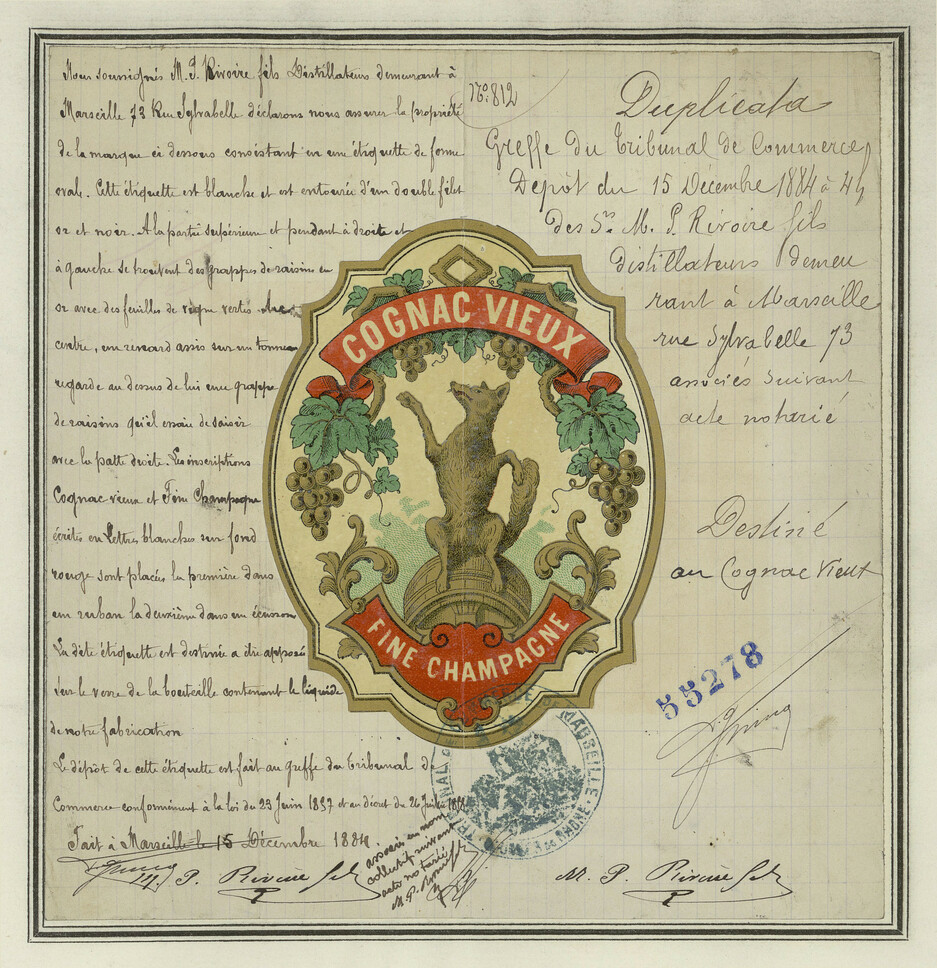 Nous soussignés M. P. Rivoire fils Distillateurs demeurant à
Marseille 73 Rue Sylvabelle déclarons nous assurer la propriété
de la marque ci dessous consistant en une étiquette de forme
ovale. Cette étiquette est blanche et est entourée d'un double filet
or et noir. A la partie supérieure et pendant à droite et
à gauche se trouvent des grappes de raisin en
or avec des feuilles de vigne vertes. Au
centre, un renard assis sur un tonneau
regarde au dessus de lui une grappe
de raisins qu'il essaie de saisir
avec la patte droite. Les inscriptions
Cognac vieux et Fine Champagne
écrites en lettres blanches sur fond
rouge sont placés la première dans
un ruban la deuxième dans un écusson
La dite étiquette est destinée a être apposée
sur le verre de la bouteille contenant le liquide
de notre fabrication
Le dépôt de cette étiquette est fait au greffe du Tribunal de
Commerce conformément à la loi du 23 Juin 1857 et au décret du 26 Juillet
Fait à Marseille le 15 Décembre 1884.
M. P. Rivoire fils
associés en nom
collectif suivant
acte notarié
M. P. Rivoire fils
No. 812
Duplicata
Greffe du Tribunal de Commerce
Dépôt du 15 Décembre 1884 à 4h
des Srs M. P. Rivoire fils
distillateurs demeu
rant à Marseille
rue Sylvabelle 73
associés suivant
acte notarié
Destiné
au Cognac Vieux
55278
M. P. Rivoire fils
COGNAC VIEUX
FINE CHAMPAGNE
TRIBUNAL DE MARSEILLE